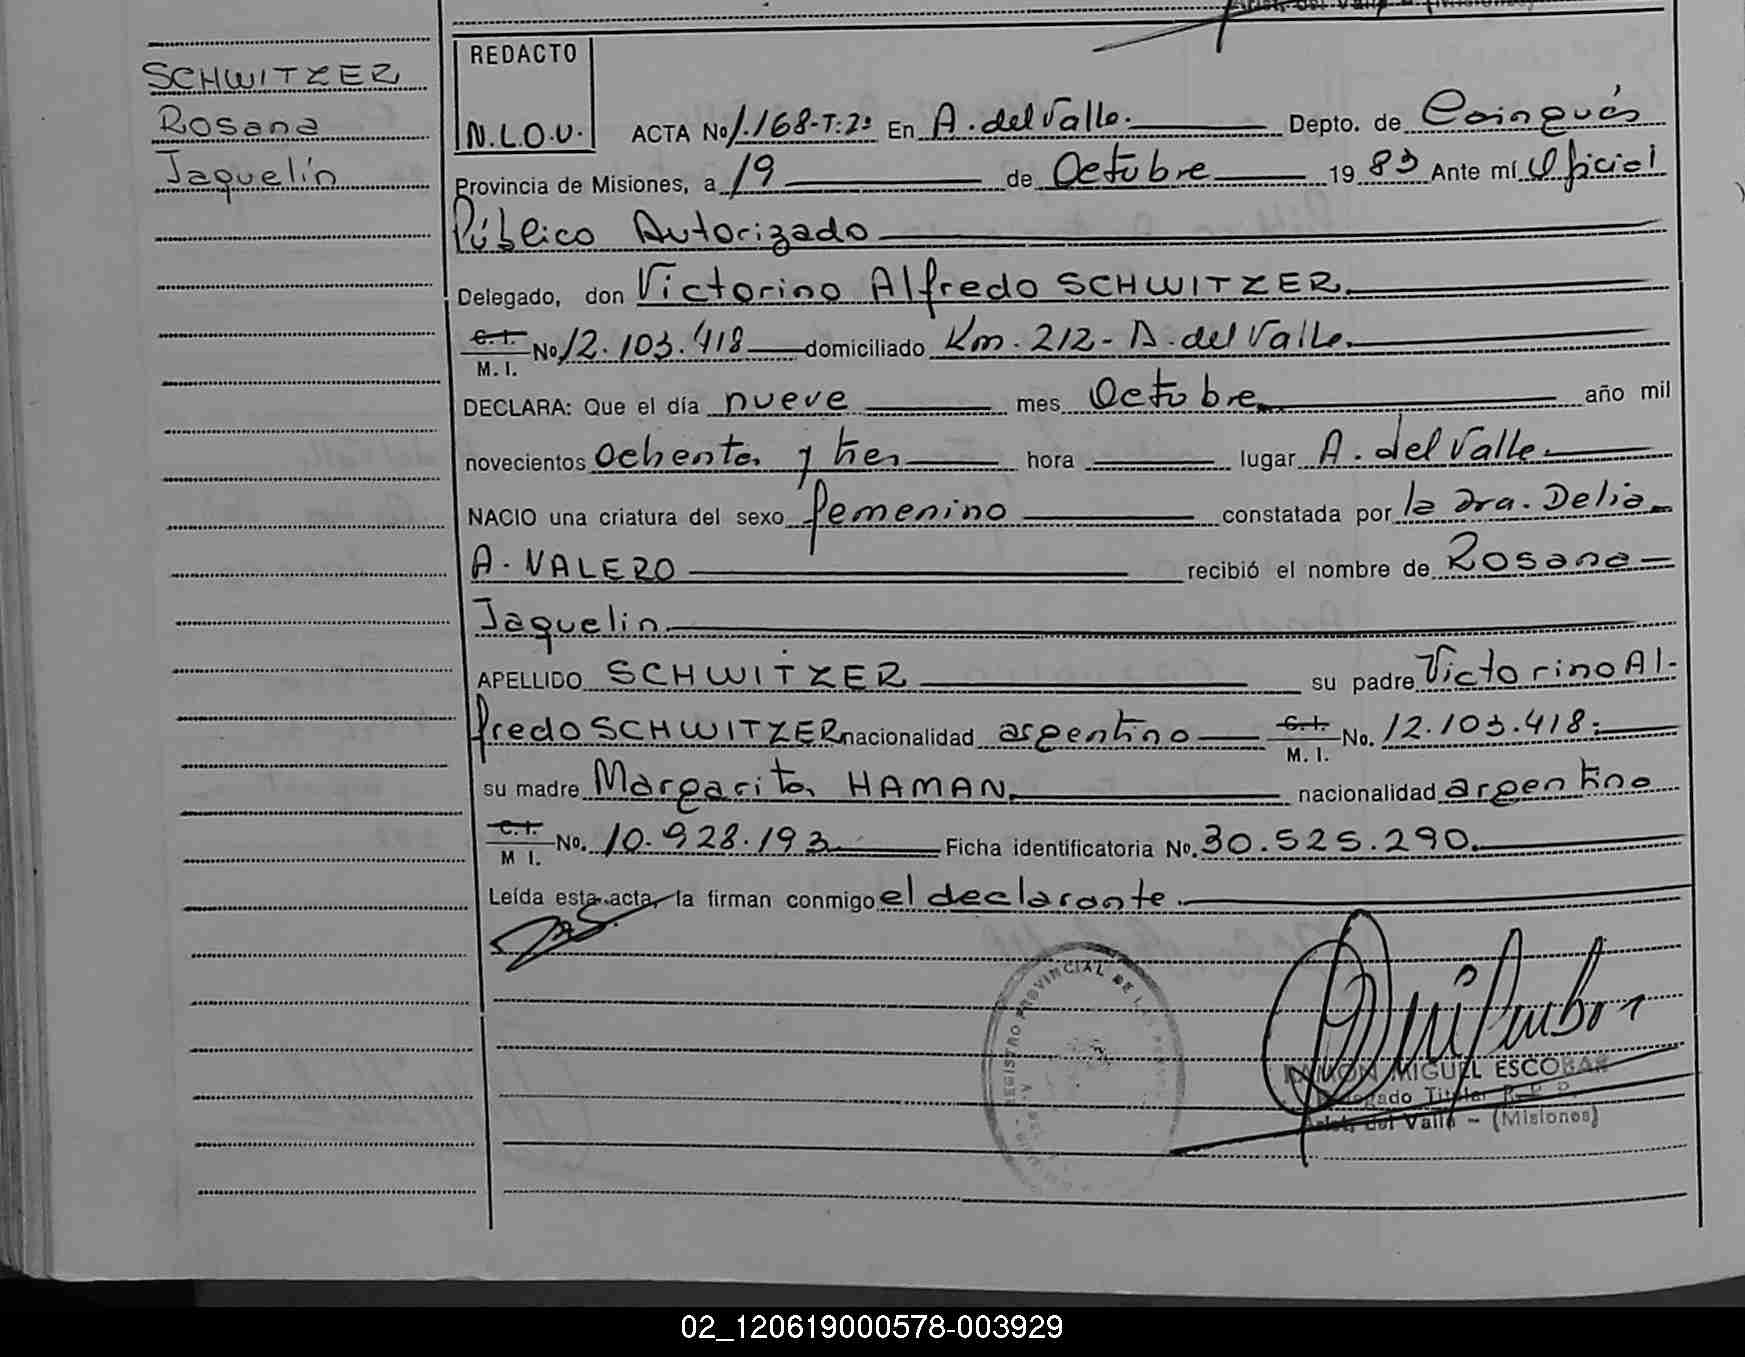 SCHWITZER
Rosana
Jaquelín
REDACTO
N.L.O.V.
ACTA No 1.168-T:2º En A. del Valle. Depto. de Cainguás
Provincia de Misiones, a 19 de Octubre 1983 Ante mí Oficial
Público Autorizado
Delegado, don Victorino Alfredo SCHWITZER.
C. I.
M. I. No 12.103.418 domiciliado Km. 212 - A. del Valle.
DECLARA: Que el día nueve mes Octubre año mil
novecientos ochenta y tres hora lugar A. del Valle
NACIO una criatura del sexo femenino constatada por la Dra. Delia
A. VALERO recibió el nombre de Rosana
Jaquelin
APELLIDO SCHWITZER su padre Victorino Al-
fredo SCHWITZER nacionalidad argentino C. I. M. I. No. 12.103.418.
su madre Margarita HAMAN nacionalidad argentina
C. I. M I. No. 10.928.193 Ficha identificatoria No. 30.525.290.
Leída esta acta, la firman conmigo el declarante.
REGISTRO PROVINCIAL DE LAS
RAMON MIGUEL ESCOBAR
Delegado Titular R. P. P.
Arist. del Valle - (Misiones)
02_120619000578-003929